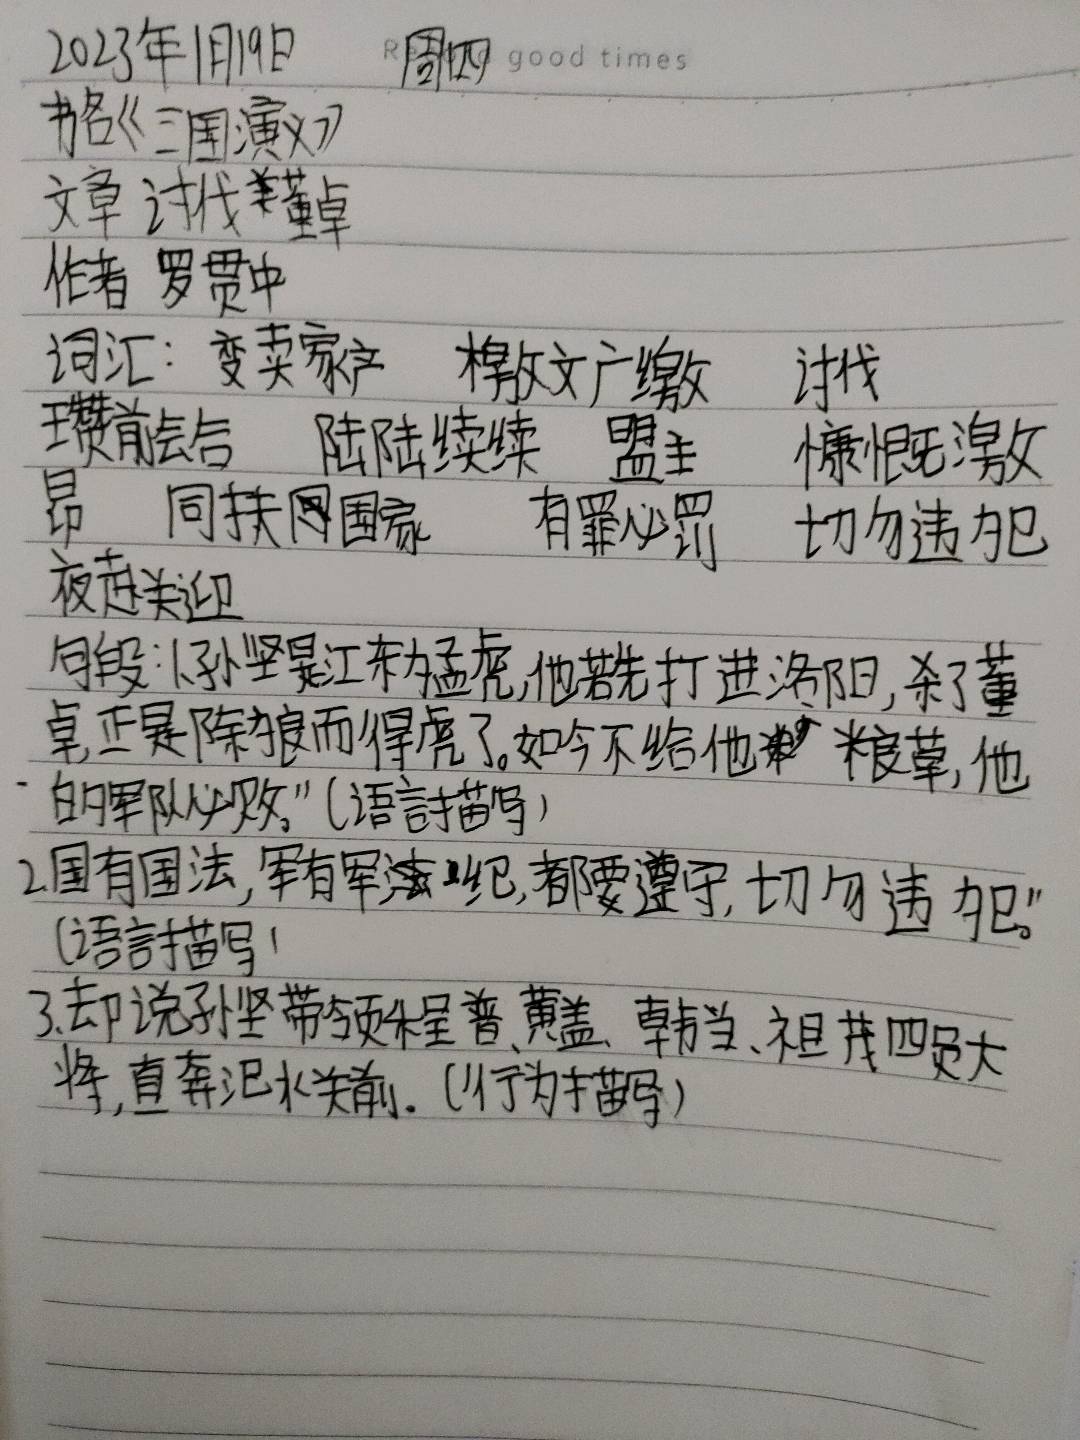 2023年1月19日 周四
good times
书名《三国演义》
文章 讨代董卓
作者 罗贯中
词汇：变卖家产 檄文广缴 讨伐
瓒前会后 陆陆续续 盟主 慷慨激
昂 同扶国家 有罪必罚 切勿违犯
夜赴关迎
句段：1.孙坚是江东猛虎，他若先打进洛阳，杀了董
卓，正是除狼而得虎了。如今不给他粮草，他
的军队必败。”（语言描写）
2.国有国法，军有军纪，都要遵守，切勿违犯。”
（语言描写）
3.却说孙坚带领程普、黄盖、韩当、祖茂四员大
将，直奔汜水关前.（行为描写）